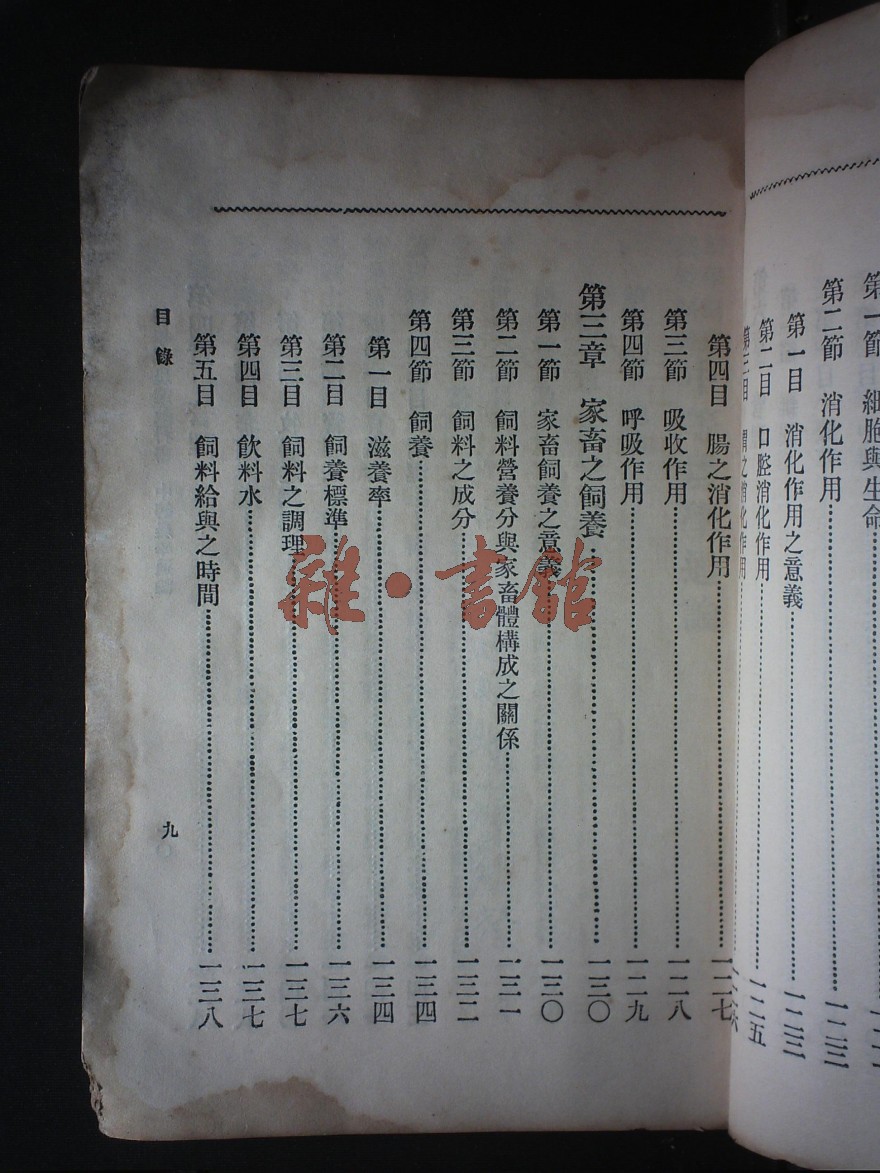 第一節 細胞與生命
第二節 消化作用 一二三
第一目 消化作用之意義 一二三
第二目 口腔消化作用 一二五
第三目 胃之消化作用
第四目 腸之消化作用 一二七
第三節 吸收作用 一二八
第四節 呼吸作用 一二九
第三章 家畜之飼養 一三〇
第一節 家畜飼養之意義 一三〇
第二節 飼料營養分與家畜體構成之關係 一三一
第三節 飼料之成分 一三二
第四節 飼養 一三四
第一目 滋養率 一三四
第二目 飼養標準 一三六
第三目 飼料之調理 一三七
第四目 飲料水 一三七
第五目 飼料給與之時間 一三八
目錄 九
雜·書館